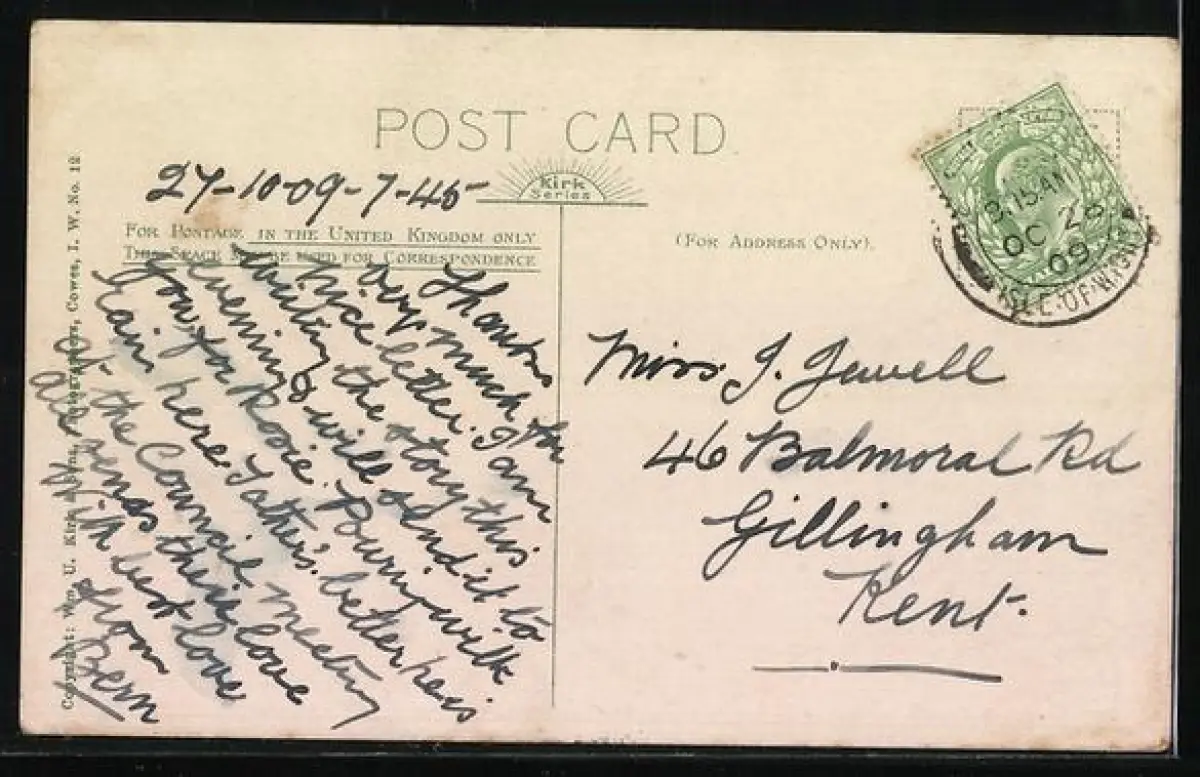 POST CARD
Kirk
Series
27-10-09-7-45
FOR POSTAGE IN THE UNITED KINGDOM ONLY
THIS SPACE MAY BE USED FOR CORRESPONDENCE
(FOR ADDRESS ONLY).
Thanks
very much for
nice letter. I am
writing the story this
evening & will send it to
you, for Rosie. Pouring with
rain here. Father's better he is
at the Council meeting
all sends their love
With best love
from
Bern
Miss. J. Jewell
46 Balmoral Rd
Gillingham
Kent.
9.15.AM
OC 28
09
ISLE.OF.WIGHT
Copyright: Wm. U. Kirk Cowes, I. W. No. 12